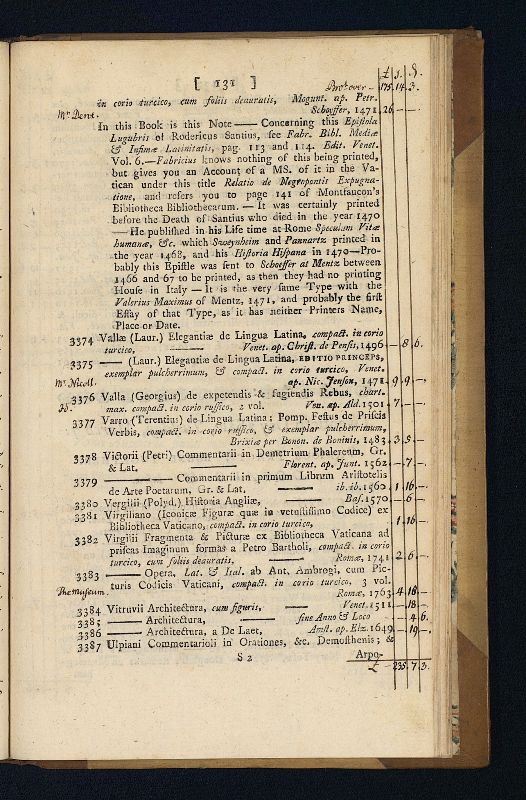 £ s. d.
[ 131 ] Bro.t over - 175.14.3.
in corio turcico, cum foliis deauratis, Mogunt. ap. Petr.
Mr Dent. Schoyffer, 1471 26 - -
In this Book is this Note —— Concerning this Epistola
Lugubris of Rodericus Santius, see Fabr. Bibl. Mediæ
& Infimæ Latinitatis, pag. 113 and 114. Edit. Venet.
Vol. 6.—Fabricius knows nothing of this being printed,
but gives you an Account of a MS. of it in the Va-
tican under this title Relatio de Negropontis Expugna-
tione, and refers you to page 141 of Montfaucon's
Bibliotheca Bibliothecarum. — It was certainly printed
before the Death of Santius who died in the year 1470
—He published in his Life time at Rome Speculum Vitæ
humanæ, &c. which Sweynheim and Pannartz printed in
the year 1468, and his Historia Hispana in 1470—Pro-
bably this Epistle was sent to Schoeffer at Mentz between
1466 and 67 to be printed, as then they had no printing
House in Italy — It is the very same Type with the
Valerius Maximus of Mentz, 1471, and probably the first
Essay of that Type, as it has neither Printers Name,
Place or Date.
3374 Vallæ (Laur.) Elegantiæ de Lingua Latina, compact. in corio
turcico, —— Venet. ap. Christ. de Pensis, 1496 - 8.6.
3375 —— (Laur.) Elegantiæ de Lingua Latina, EDITIO PRINCEPS,
exemplar pulcherrimum, & compact. in corio turcico, Venet.
Mr Nicoll. ap. Nic. Jenson, 1471 9.9.-
3376 Valla (Georgius) de expetendis & fugiendis Rebus, chart.
max. compact. in corio russico, 2 vol. Ven. ap. Ald. 1501 7.-.-
3377 Varro (Terentius) de Lingua Latina; Pomp. Festus de Priscis
Verbis, compact. in corio russico, & exemplar pulcherrimum,
Brixiæ per Bonon. de Boninis, 1483 3.5.-
3378 Victorii (Petri) Commentarii in Demetrium Phalereum, Gr.
& Lat. —— Florent. ap. Junt. 1562 - 7.-
3379 —— Commentarii in primum Librum Aristotelis
de Arte Poetarum, Gr. & Lat, —— ib. ib. 1560 1.16.-
3380 Vergilii (Polyd.) Historia Angliæ, —— Bas. 1570 - 6.-
3381 Virgiliano (Iconicæ Figuræ quæ in vetustissimo Codice) ex
Bibliotheca Vaticano, compact. in corio turcico, 1.16.-
3382 Virgilii Fragmenta & Picturæ ex Bibliotheca Vaticana ad
priscas Imaginum formas a Petro Bartholi, compact. in corio
turcico, cum foliis deauratis, —— Romæ, 1741 2.6.-
3383 —— Opera, Lat. & Ital. ab Ant. Ambrogi, cum Pic-
turis Codicis Vaticani, compact. in corio turcico, 3 vol.
The museum. Romæ, 1763 4.18.-
3384 Vitruvii Architectura, cum figuris, —— Venet. 1511 - 18.-
3385 —— Architectura, —— sine Anno & Loco - 4.6.
3386 —— Architectura, a De Laet, Amst. ap. Elz. 1649 - 19.-
3387 Ulpiani Commentarioli in Orationes, &c. Demosthenis; &
S 2 Arpo-
£ - 235.7.3.